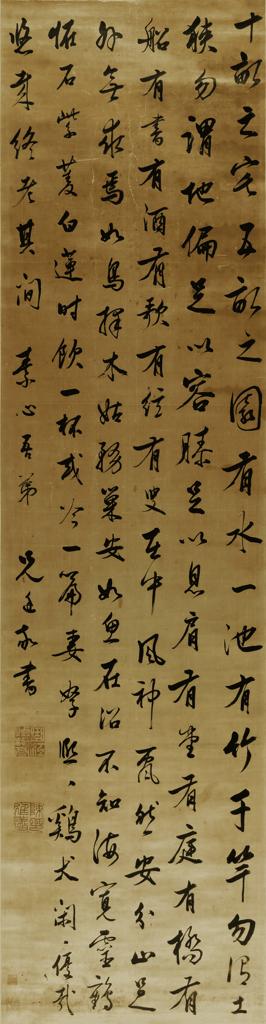 十畝之宅五畝之園有水一池有竹千竿勿謂土
狹勿謂地偏足以容膝足以息肩有堂有庭有橋有
船有書有酒有歌有弦有叟在中風神然安分止足
外無求焉如鳥擇木姑務巢安如魚在沼不知海寬靈鶴
怪石紫菱白蓮時飲一杯或吟一篇妻孥熙々鷄犬閑々優哉
悠哉終老其間 素心吾弟 兄廷敬書